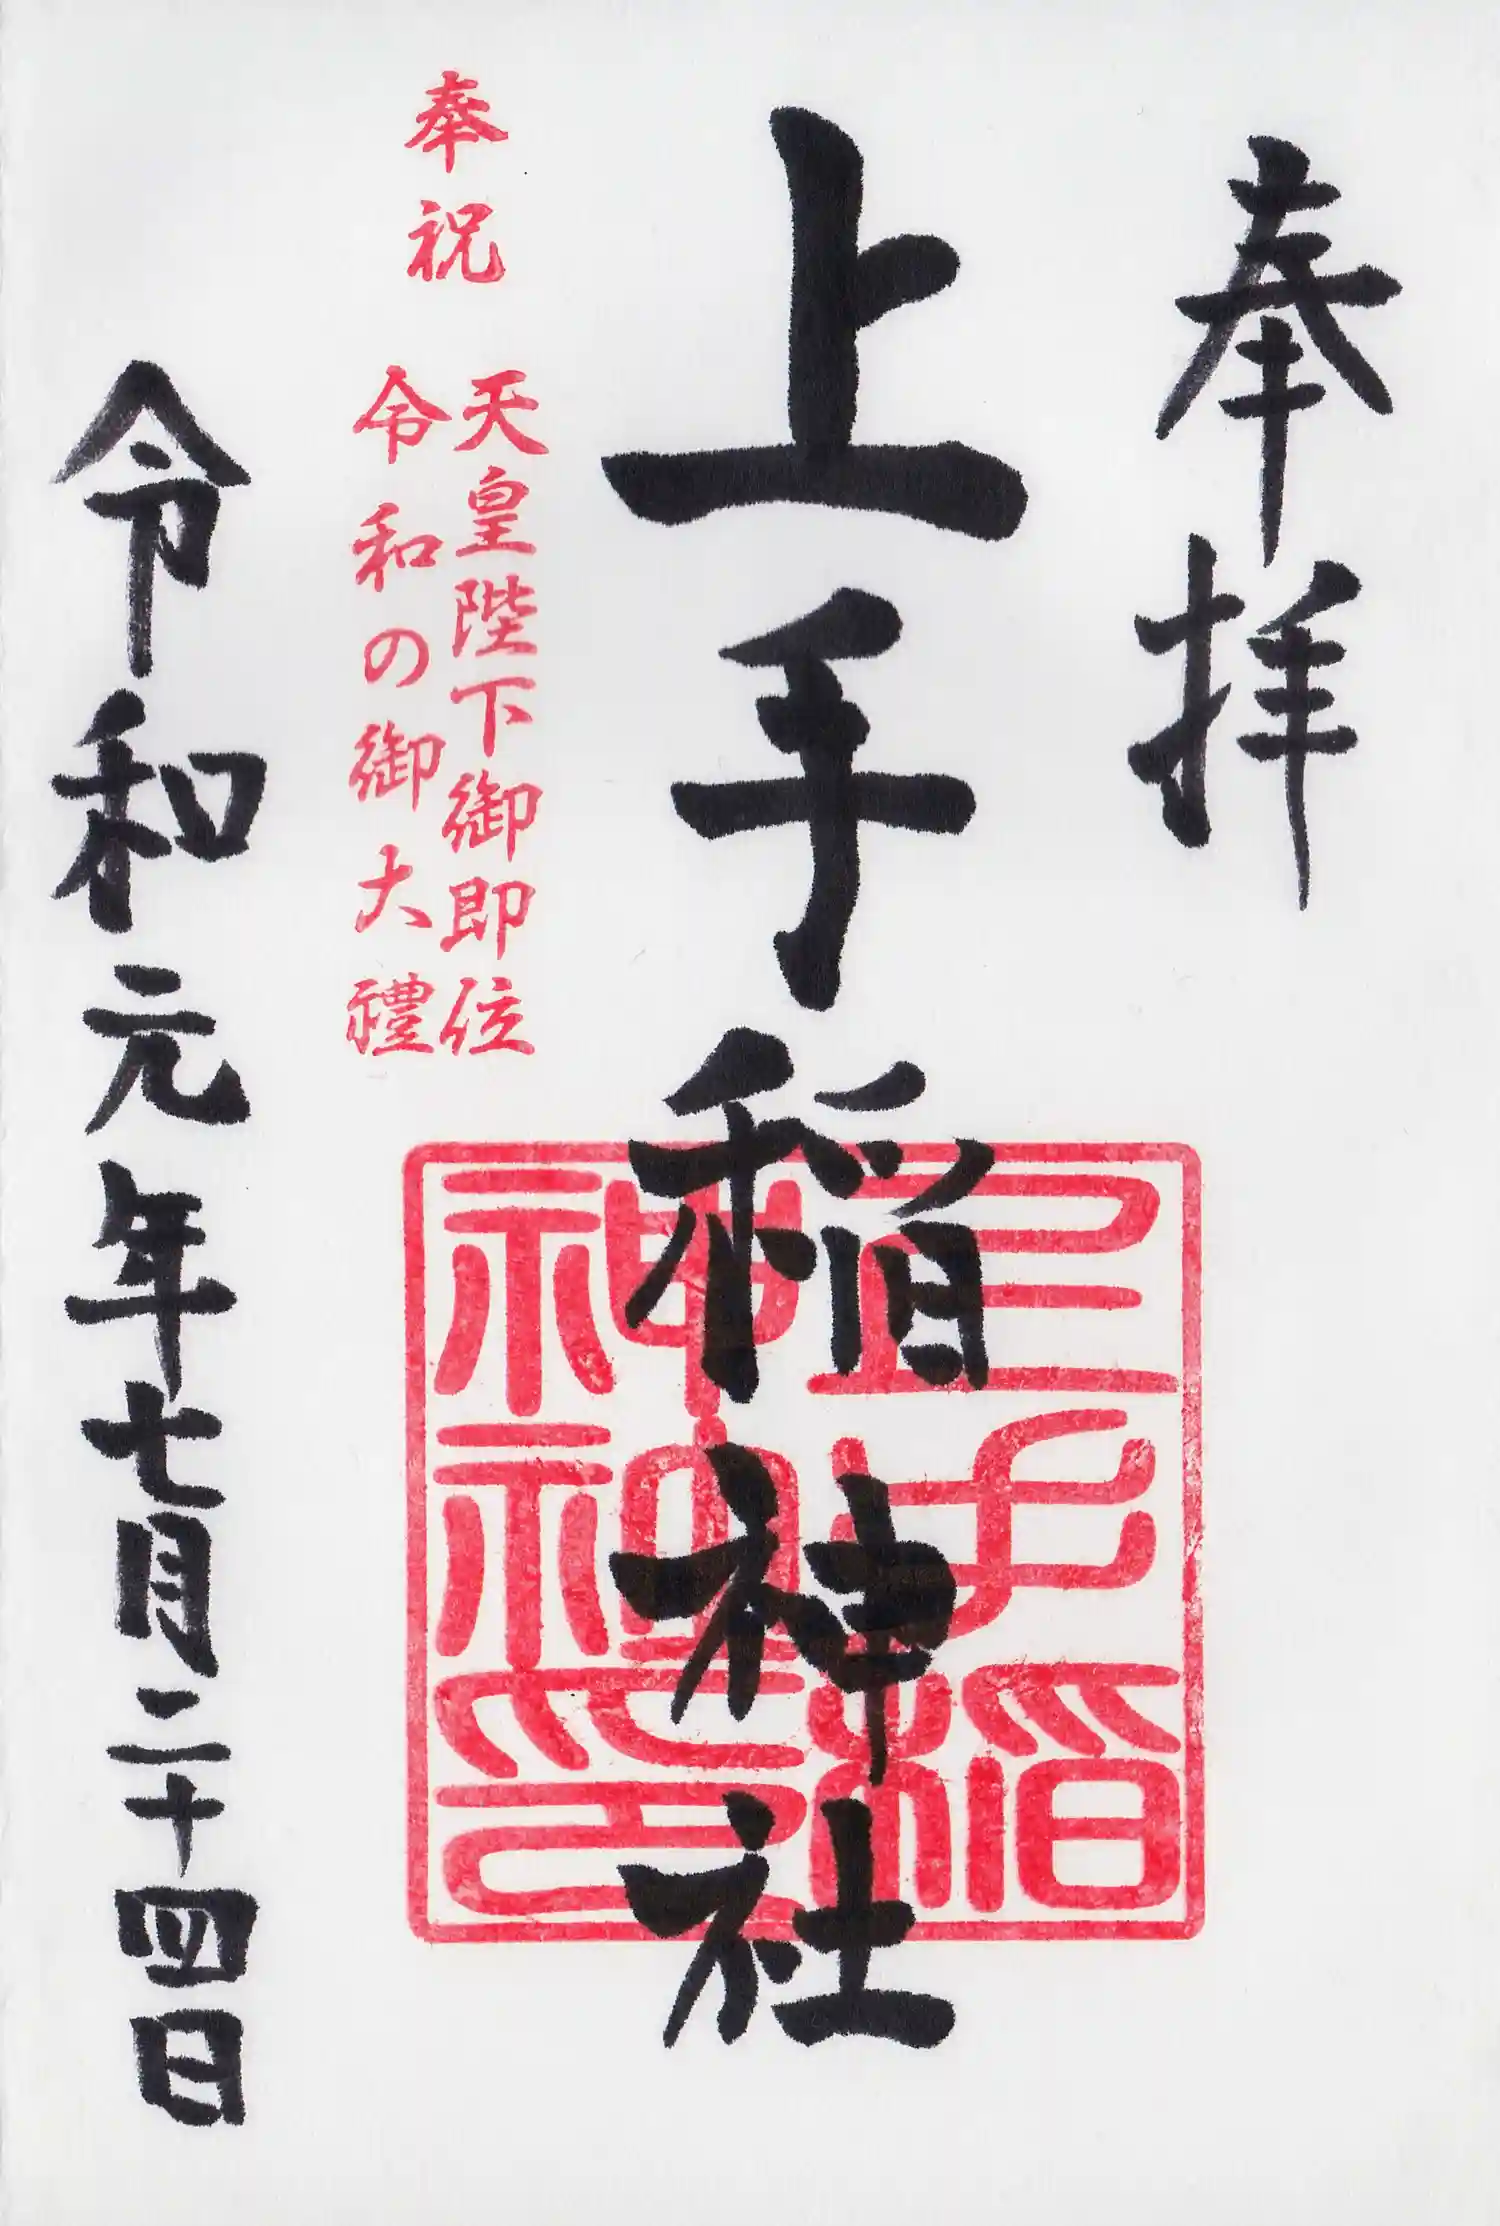 奉拝
上手稲神社
奉祝
天皇陛下御即位
令和の御大禮
令和元年七月二十四日
上手稲
神社印